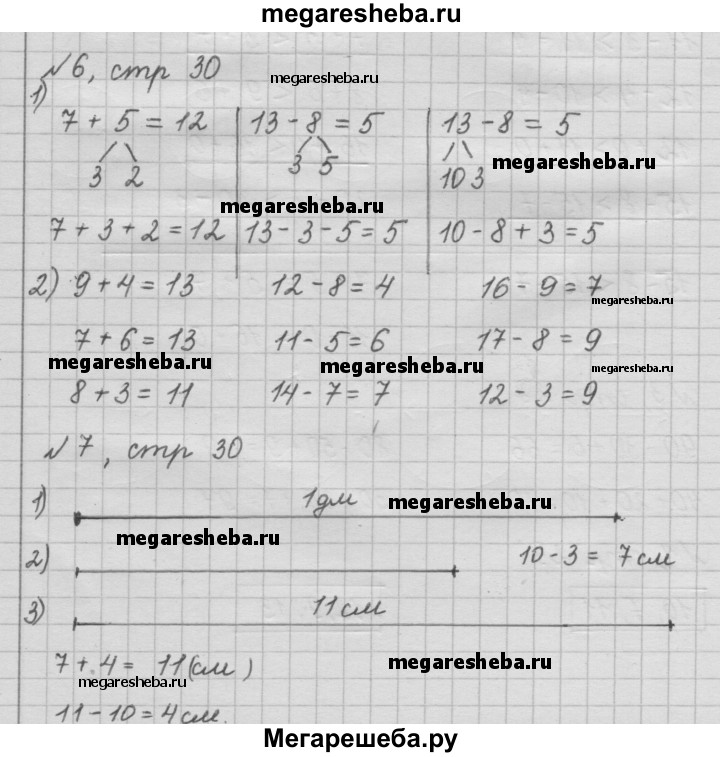 megaresheba.ru
№6, стр 30 megaresheba.ru
1)
7 + 5 = 12 13 - 8 = 5 13 - 8 = 5
3 2 3 5 10 3 megaresheba.ru
megaresheba.ru
7 + 3 + 2 = 12 13 - 3 - 5 = 5 10 - 8 + 3 = 5
2) 9 + 4 = 13 12 - 8 = 4 16 - 9 = 7
megaresheba.ru
7 + 6 = 13 11 - 5 = 6 17 - 8 = 9
megaresheba.ru megaresheba.ru megaresheba.ru
8 + 3 = 11 14 - 7 = 7 12 - 3 = 9
№7, стр 30
1) 1дм megaresheba.ru
megaresheba.ru
2) 10 - 3 = 7 см
3) 11 см
7 + 4 = 11 (см) megaresheba.ru
megaresheba.ru
11 - 10 = 4 см.
Мегарешеба.ру